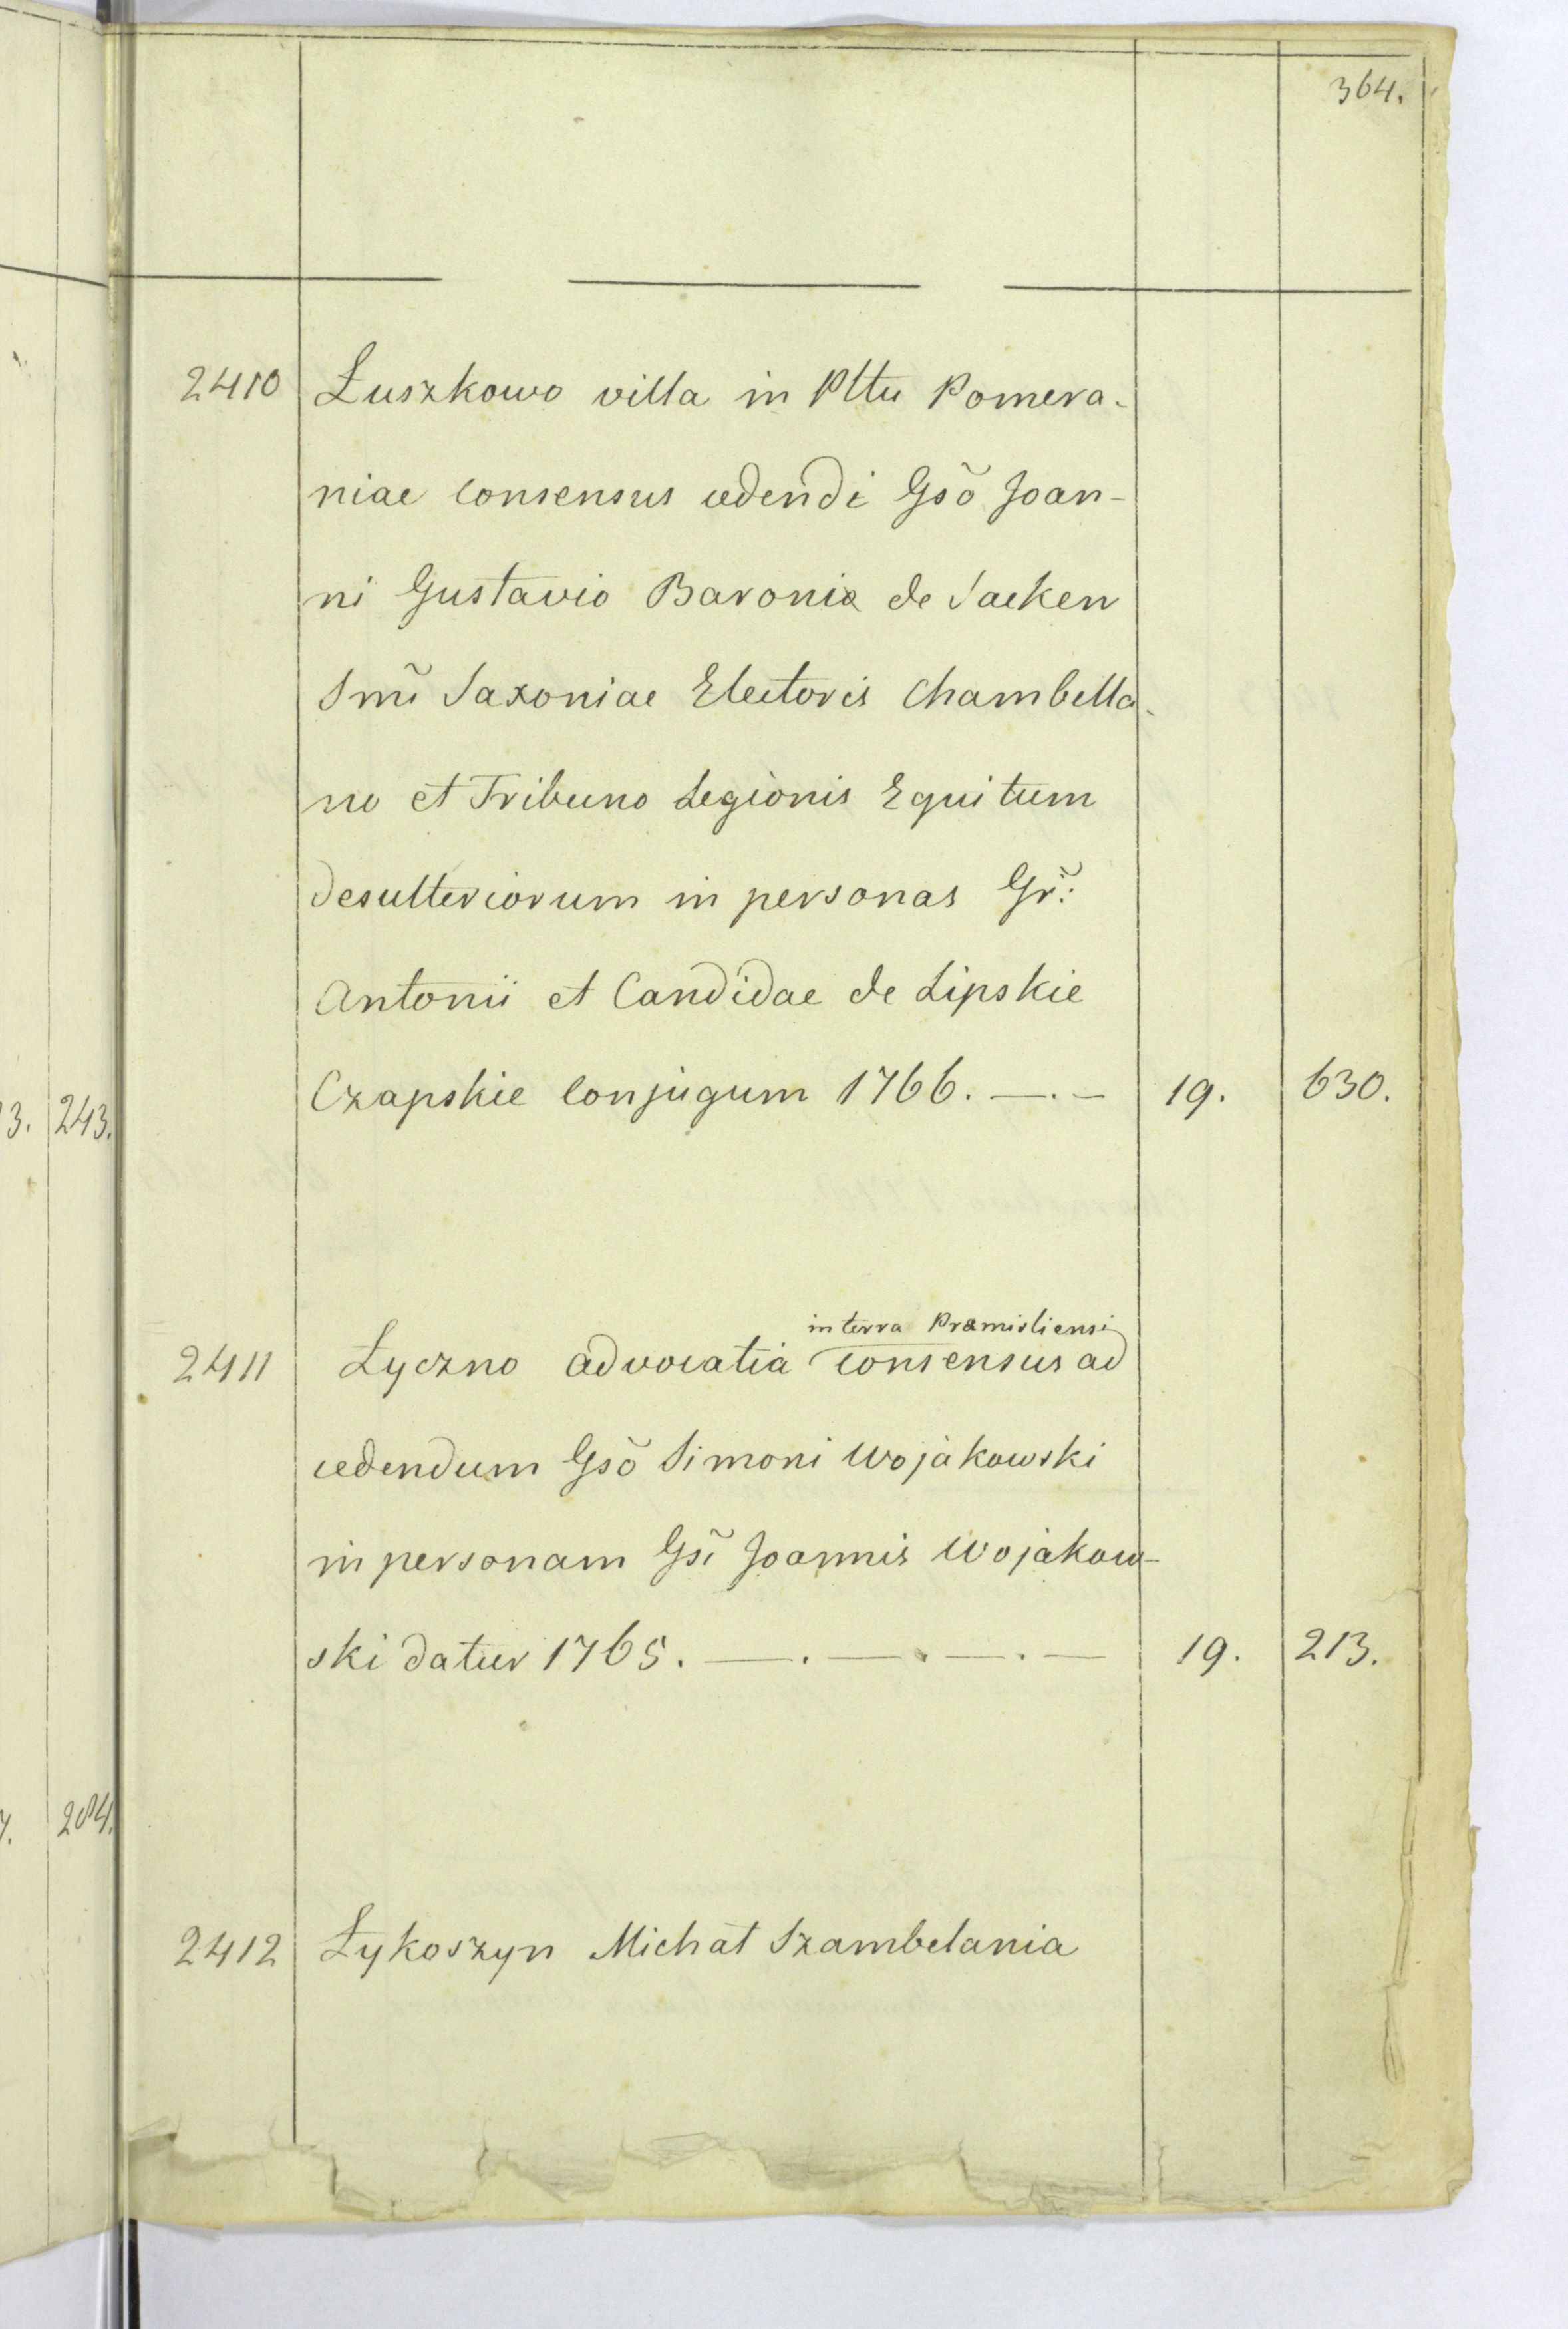 364.
2410 Łuszkowo villa in Pltu Pomera-
niae consensus cedendi Gsõ Joan-
ni Gustavio Baronia de Sacken
Smĩ Saxoniae Electoris Chambella-
no et Tribuno Legionis Equitum
desulteriorum in personas Gr̃:
Antonii et Candidae de Lipskie
Czapskie Conjugum 1766. —.— 19. 630.
3. 243.
in terra Præmisliensi
2411 Łyczno advocatia consensus ad
cedendum Gsõ Simoni Wojakowski
in personam Gsĩ Joannis Wojakow-
ski datur 1765. —.—.—.— 19. 213.
204.
2412 Łykoszyn Michał Szambelania